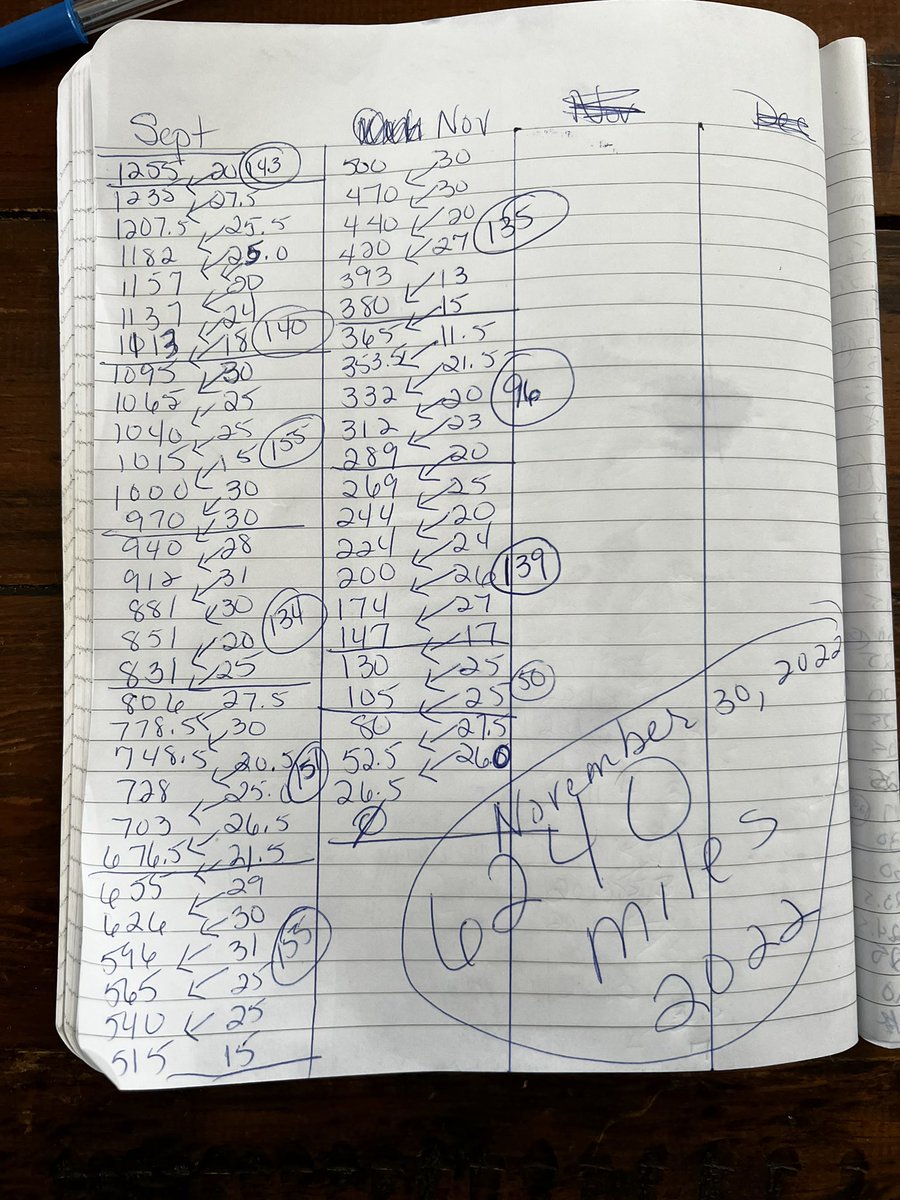 Sept
1255 20 143
1235 27.5
1207.5 25.5
1182 25.0
1157 20
1137 24
1113 18 140
1095 30
1065 25
1040 25
1015 15 155
1000 30
970 30
940 28
912 31
881 30
851 20 134
831 25
806 27.5
778.5 30
748.5 20.5
728 25.0 151
703 26.5
676.5 21.5
655 29
626 30
596 31 155
565 25
540 25
515 15
Nov
500 30
470 30
440 20
420 27 135
393 13
380 15
365 11.5
353.5 21.5
332 20 96
312 23
289 20
269 25
244 20
224 24
200 26 139
174 27
147 17
130 25
105 25 50
80 27.5
52.5 26.0
26.5
0
Nov
Dec
November 30, 2022
6240
miles
2022